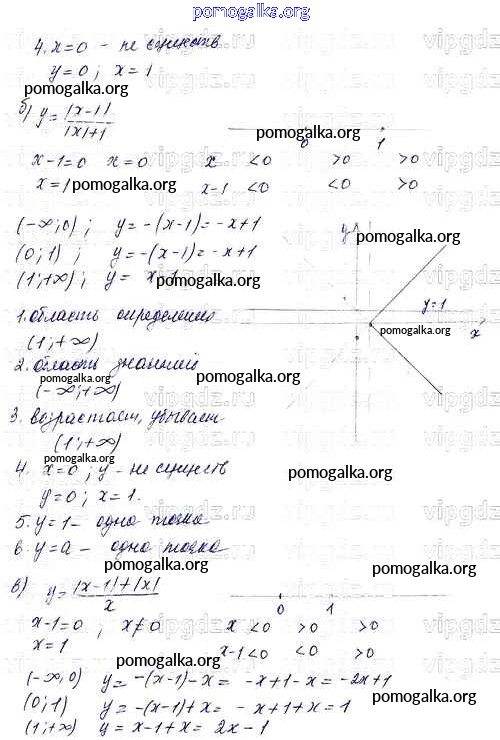 pomogalka.org
4. x=0 - не существ
y=0; x=1
pomogalka.org
б) y=|x-1|/|x|+1
pomogalka.org
0 1
x-1=0 x=0 x <0 >0 >0
x=1 pomogalka.org x-1 <0 <0 >0
(-∞;0); y=-(x-1)=-x+1
(0;1); y=-(x-1)=-x+1
y pomogalka.org
(1;+∞); y= x-1
pomogalka.org
1. область определения y=1
(1;+∞) pomogalka.org x
2. область значений
pomogalka.org pomogalka.org
(-∞;+∞)
3. возрастает, убывает
(1;+∞)
pomogalka.org
4. x=0; y - не существ
pomogalka.org
y=0; x=1.
5. y=1 - одна точка
6. y=a - одна точка
pomogalka.org
в) y=|x-1|+|x|/x
0 1
x-1=0; x≠0 x <0 >0 >0
x=1 x-1 <0 <0 >0
pomogalka.org
(-∞;0) y=-(x-1)-x= -x+1-x=-2x+1
pomogalka.org
(0;1) y=-(x-1)+x= -x+1+x=1
(1;+∞) y=x-1+x= 2x-1
pomogalka.org